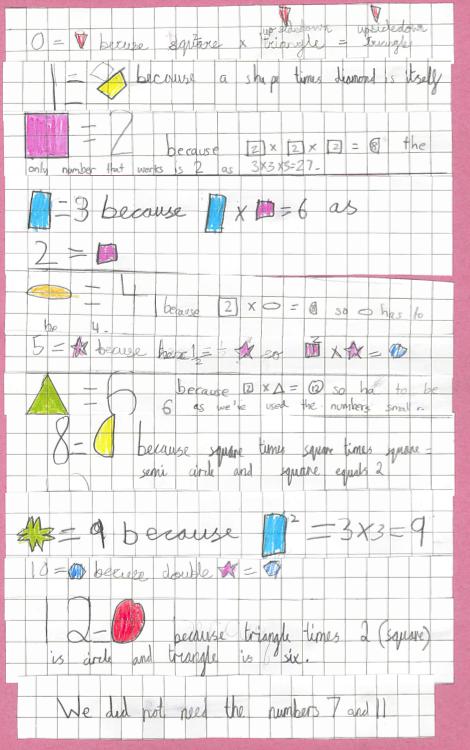 upsidedown upsidedown
0 = becuse square x triangle = triangle
1 = because a shape times diamond is itself
= 2 because 2 x 2 x 2 = 8 the
only number that works is 2 as 3x3x3=27.
= 3 because x = 6 as
2 =
= 4 because 2 x = 8 so has to
be 4.
5 = becuse so 2 x =
= 6 because 2 x = 12 so ha to be
6 as we've used the numbers small
8 = because square times square times square =
semi circle and square equals 2
= 9 because 2 = 3x3=9
10 = becuse double =
12 = because triangle times 2 (square)
is circle and triangle is six.
We did not need the numbers 7 and 11